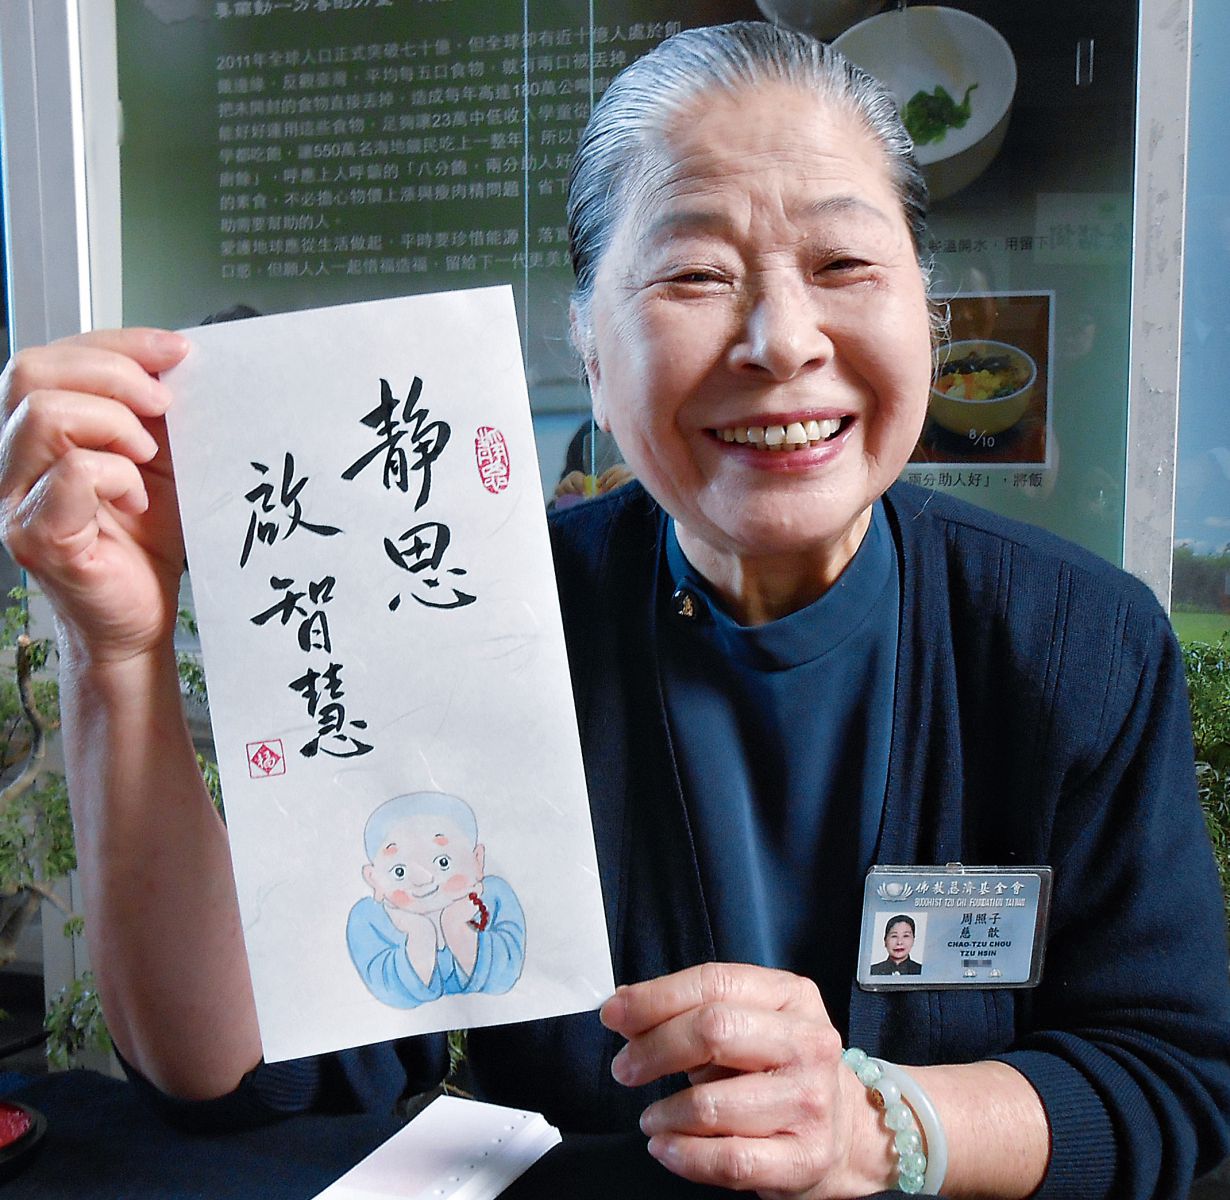 2011年全球人口正式突破七十億，但全球卻有近十億人處於飢
餓邊緣，反觀臺灣，平均每五口食物，就有兩口被丟掉，
把未開封的食物直接丟掉，造成每年高達180萬公噸
能好好運用這些食物，足夠讓23萬中低收入學童從
學都吃飽，讓550萬名海地饑民吃上一整年，所以
廚餘」，呼應上人呼籲的「八分飽，兩分助人好
的素食，不必擔心物價上漲與瘦肉精問題，省下
助需要幫助的人。
愛護地球應從生活做起，平時要珍惜能源，落實
口慾，但願人人一起惜福造福，留給下一代更美好
溫開水，用留下
8/10
兩分助人好」，將飯
靜思
啟智慧
靜思
福
佛教慈濟基金會
BUDDHIST TZU CHI FOUNDATION TAIWAN
周照子
慈歆
CHAO-TZU CHOU
TZU HSIN